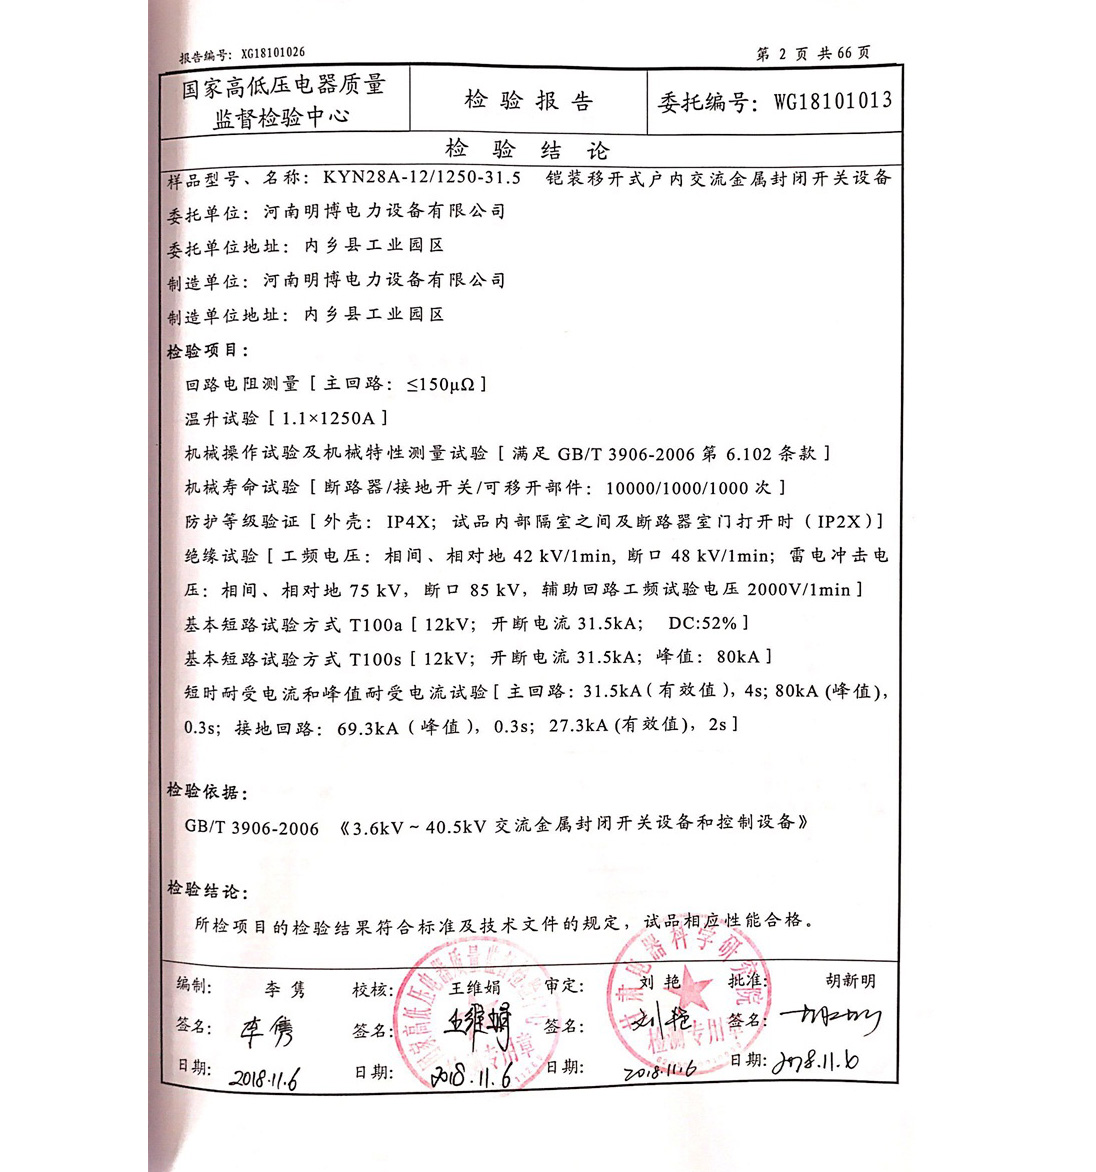 报告编号：XG18101026
第 2 页 共 66 页
国家高低压电器质量
监督检验中心
检 验 报 告
委托编号：WG18101013
检 验 结 论
样品型号、名称：KYN28A-12/1250-31.5 铠装移开式户内交流金属封闭开关设备
委托单位：河南明博电力设备有限公司
委托单位地址：内乡县工业园区
制造单位：河南明博电力设备有限公司
制造单位地址：内乡县工业园区
检验项目：
回路电阻测量［主回路：≤150μΩ］
温升试验［1.1×1250A］
机械操作试验及机械特性测量试验［满足 GB/T 3906-2006 第 6.102 条款］
机械寿命试验［断路器/接地开关/可移开部件：10000/1000/1000 次］
防护等级验证［外壳：IP4X；试品内部隔室之间及断路器室门打开时（IP2X）］
绝缘试验［工频电压：相间、相对地 42 kV/1min, 断口 48 kV/1min；雷电冲击电
压：相间、相对地 75 kV，断口 85 kV，辅助回路工频试验电压 2000V/1min］
基本短路试验方式 T100a［12kV；开断电流 31.5kA； DC:52%］
基本短路试验方式 T100s［12kV；开断电流 31.5kA；峰值：80kA］
短时耐受电流和峰值耐受电流试验［主回路：31.5kA（有效值），4s；80kA（峰值），
0.3s；接地回路：69.3kA（峰值），0.3s；27.3kA（有效值），2s］
检验依据：
GB/T 3906-2006 《3.6kV～40.5kV 交流金属封闭开关设备和控制设备》
检验结论：
所检项目的检验结果符合标准及技术文件的规定，试品相应性能合格。
编制： 李 隽 校核： 王维娟 审定： 刘 艳 批准： 胡新明
签名： 李隽 签名： 王维娟 签名： 刘艳 签名：
日期： 2018.11.6 日期： 2018.11.6 日期： 2018.11.6 日期： 2018.11.6